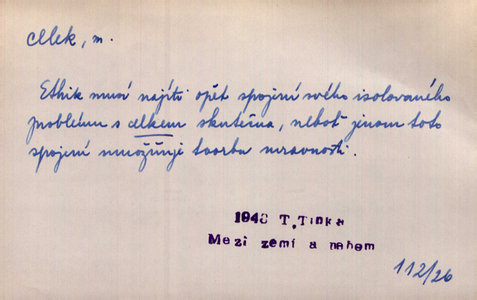 celek, m.
Ethik musí najíti opět spojení svého isolovaného
problému s celkem skutečna, neboť jenom toto
spojení umožňuje tvorbu mravnosti.
1948 T. Tinka
Mezi zemí a nebem
112/26